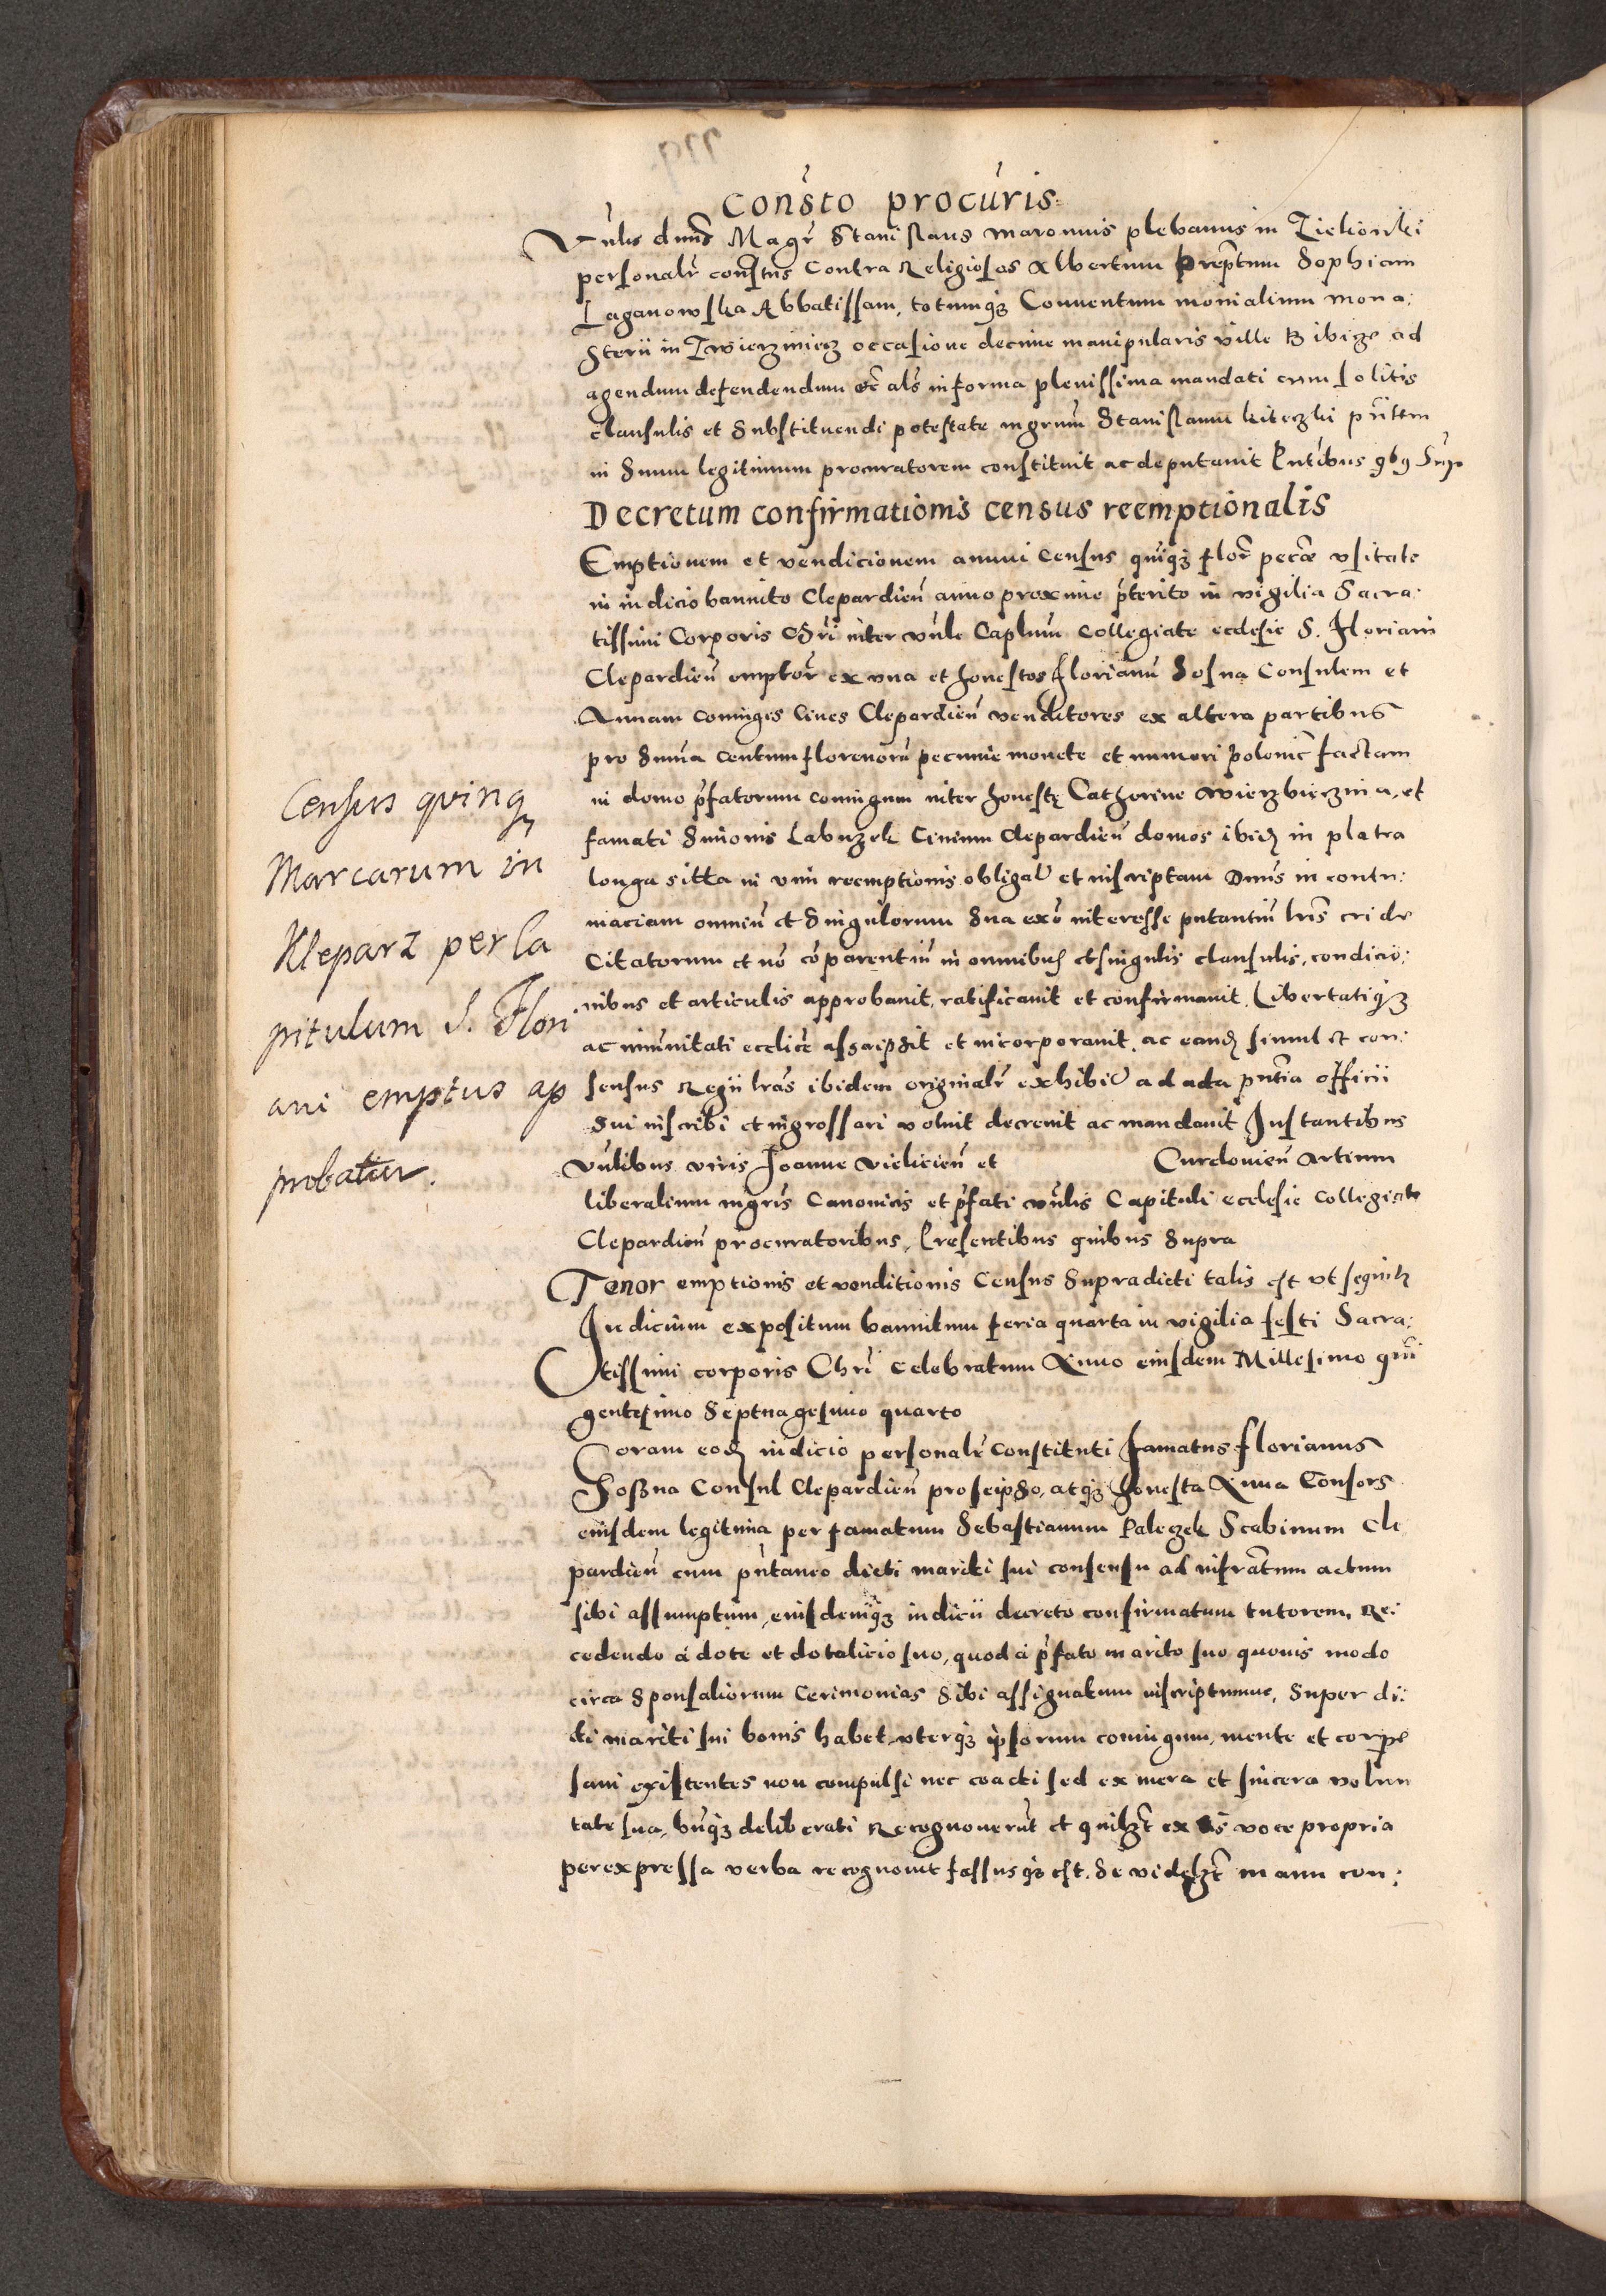 Consto procuris
Vnlis dnus Magr Stanislaus maronius plebanus in Zielionki
personalr constus contra Religiosos Albertum preptum Sophiam
Laganowska Abbatissam, totumqz Conuentum monialium mona:
sterii in Zwierziniecz occasione decime manipularis ville Bibice ad
agendum defendendum etc als in forma plenissima mandati cum solitis
clausulis et substituendi potestate mgrum Stanislaum prntem
in suum legitimum procuratorem constituit ac deputauit Pntibus qbq Supr
Decretum confirmationis census reemptionalis
Emptionem et vendicionem annui census quiqz flor pecae vsitate
in iudicio bannito Clepardien anno proxime preterito in vigilia Sacra:
tissimi Corporis Chri inter vnle Caplum Collegiate ecclesie S. Floriani
Clepardien emptor ex vna et honestos Florianu Sosna Consulem et
Annam coniuges Ciues Clepardien venditores ex altera partibus
pro suma centum florenoru pecunie monete et numeri polonic factam
in domo prfatorum coniugum inter honeste Catherine Wierzbieczina, et
famati Simonis Labuzek Ciuium Clepardien domos ibid in platea
longa sitta in vim reemptionis obligat et inscriptam Dnus in contu:
maciam omniu et singulorum sua exo interesse putantiu lris cride
Citatorum et no coparentiu in omnibus et singulis clausulis, condicio:
nibus et articulis approbauit, ratificauit et confirmauit, Libertatiqz
ac imunitati ecclice asscripsit et incorporauit, ac eand simul et con:
sensus Regii lras ibidem originalr exhibit ad acta pntia officii
sui inscribi et ingrossari voluit decreuit ac mandauit Instantibus
vnlibus viris Joanne Vielicien et Curelouien Artium
liberalium mgris Canonicis et prfati vnlis Capituli ecclesie collegiate
Clepardien procuratoribus, Presentibus quibus supra
Tenor emptionis et venditionis Census supradicti talis est vt sequitr
Iudicium expositum bannitum feria quarta in vigilia festi Sacra:
tissimi corporis Chri celebratum Anno eiusdem Millesimo quin
gentesimo septuagesimo quarto
Coram eod iudicio personalr constituti famatus Florianus
Sossna Consul Clepardien pro seipso, atqz honesta Anna Consors
eiusdem legitima per famatum Sebastianum Paleczek Scabinum Cle
pardien cum pntaneo dicti mariti sui consensu ad infratum actum
sibi assumptum, eiusdemqz iudicii decreto confirmatum tutorem, Re:
cedendo a dote et dotalicio suo, quod a prfato marito suo quouis modo
circa sponsaliorum cerimonias sibi assignatum inscriptumue, super di:
cti mariti sui bonis habet, vterqz ipsorum coniugum, mente et corpe
sani existentes non compulsi nec coacti sed ex mera et sincera volun
tate sua, bnqz deliberati recognouerut et quilzt ex eis voce propria
per expressa verba recognouit fassusqz est, se videlzt manu con:
Census quinq
Marcarum in
Kleparz per Ca
pitulum S. Flori
ani emptus ap
probatur.